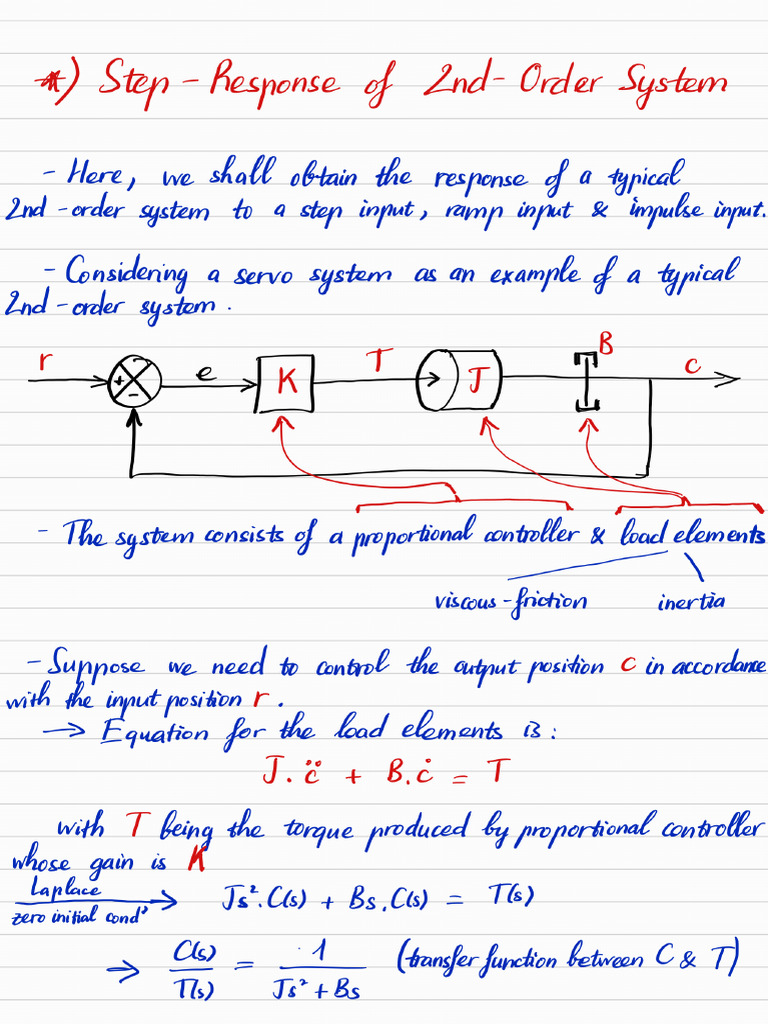 *) Step-Response of 2nd-Order System
- Here, we shall obtain the response of a typical
2nd-order system to a step input, ramp input & impulse input.
- Considering a servo system as an example of a typical
2nd-order system.
r + - e K T J B c
- The system consists of a proportional controller & load elements
viscous-friction inertia
- Suppose we need to control the output position c in accordance
with the input position r.
→ Equation for the load elements is:
J.c̈ + B.ċ = T
with T being the torque produced by proportional controller
whose gain is K
Laplace
zero initial cond⁰ → Js².C(s) + Bs.C(s) = T(s)
⇒ C(s)/T(s) = 1/(Js² + Bs) (transfer function between C & T)